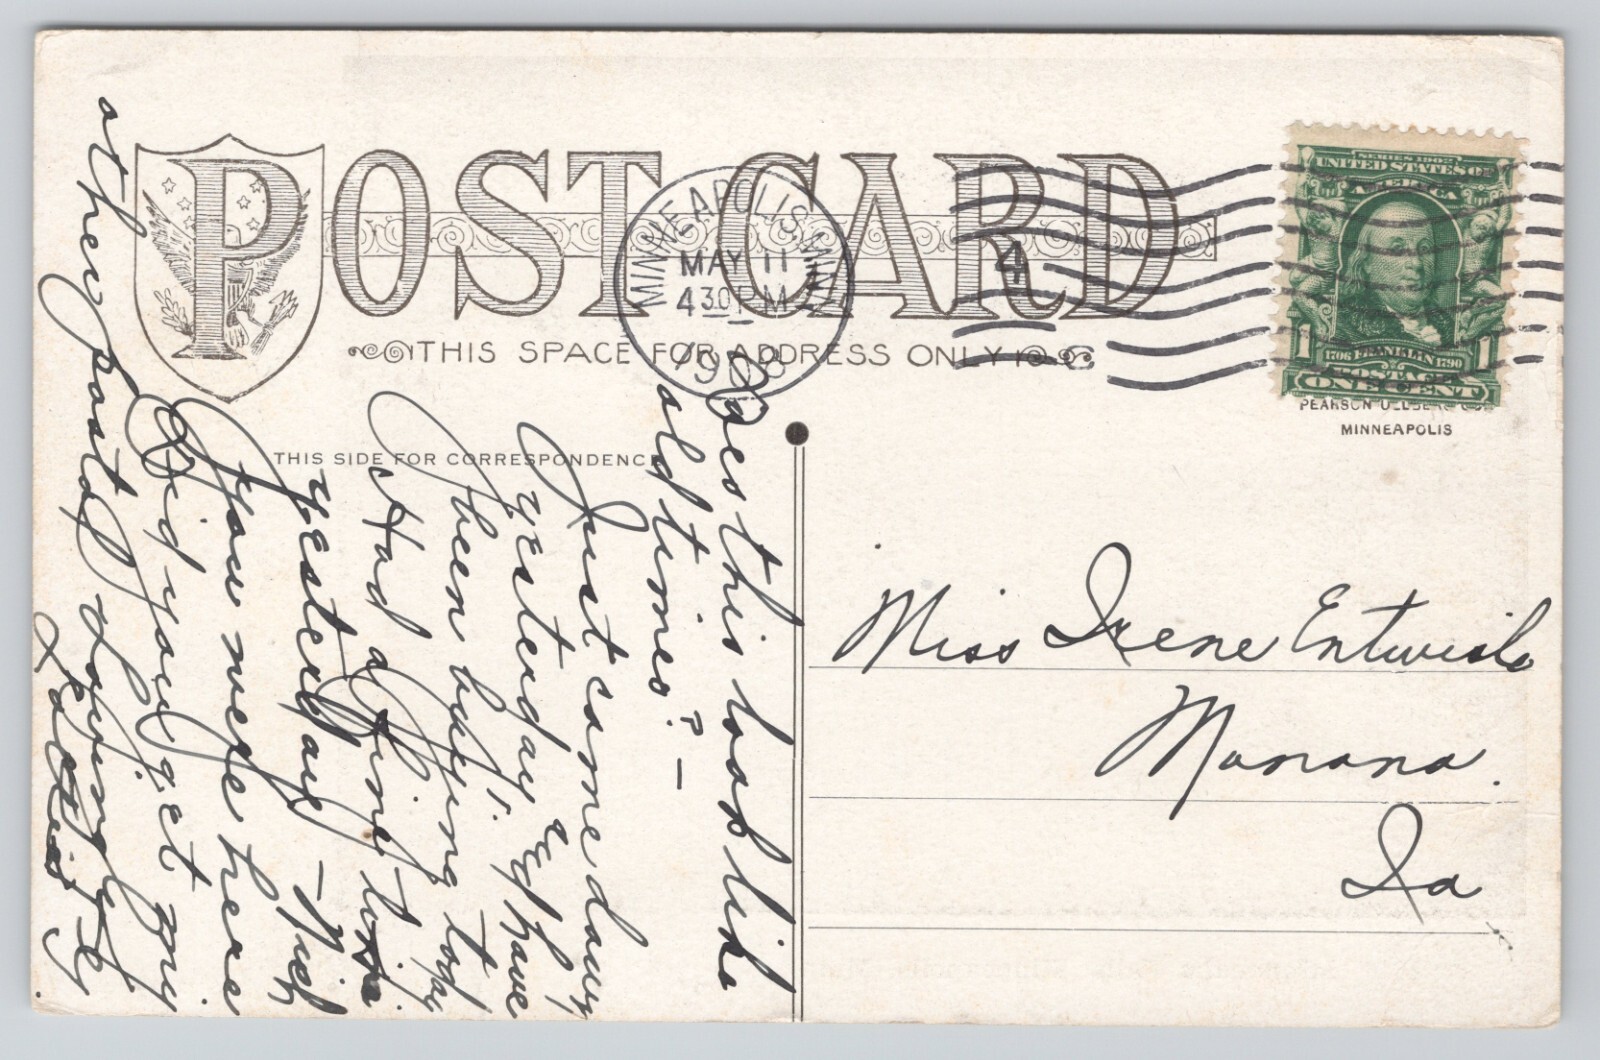 POST CARD
THIS SPACE FOR ADDRESS ONLY
MINNEAPOLIS, MINN.
MAY 11
4 30 PM
1908
4
SERIES 1902
UNITED STATES OF
AMERICA
1 1
1706 FRANKLIN 1790
POSTAGE
ONE CENT
PEARSON ULLBERG CO.
MINNEAPOLIS
THIS SIDE FOR CORRESPONDENCE
Does this look like
old times? —
Just came down
yesterday & have
been busy today
Had a fine
yesterday —Wish
you were here
Did you get my
other postal
Lovingly
Miss Irene Entwisle
Manana.
Ia